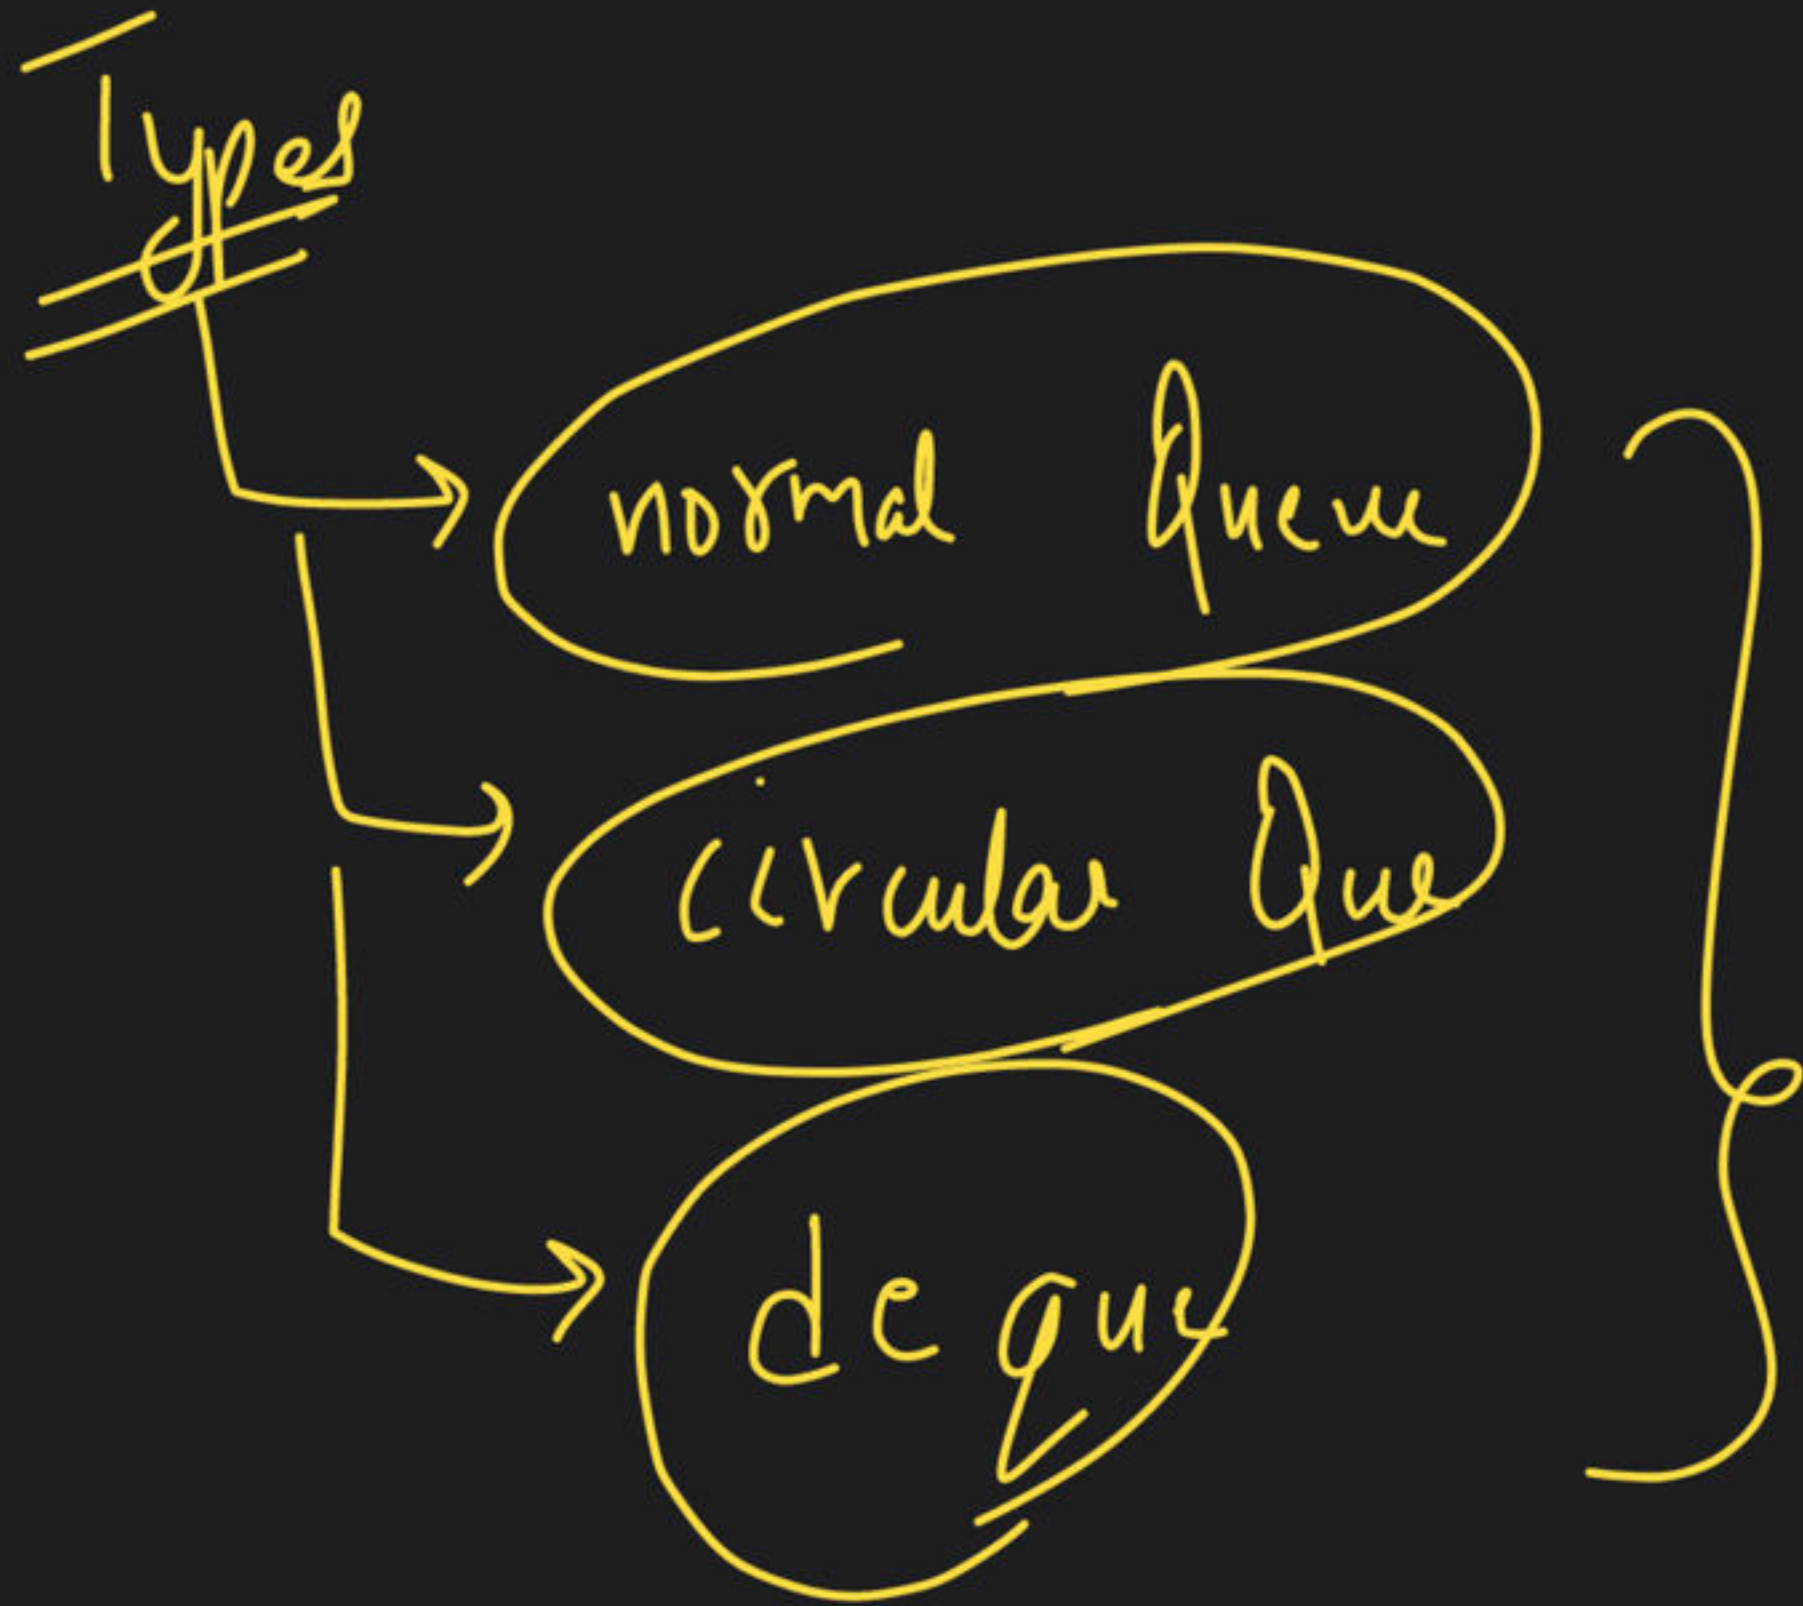 Types
normal Queue
circular Que
de que